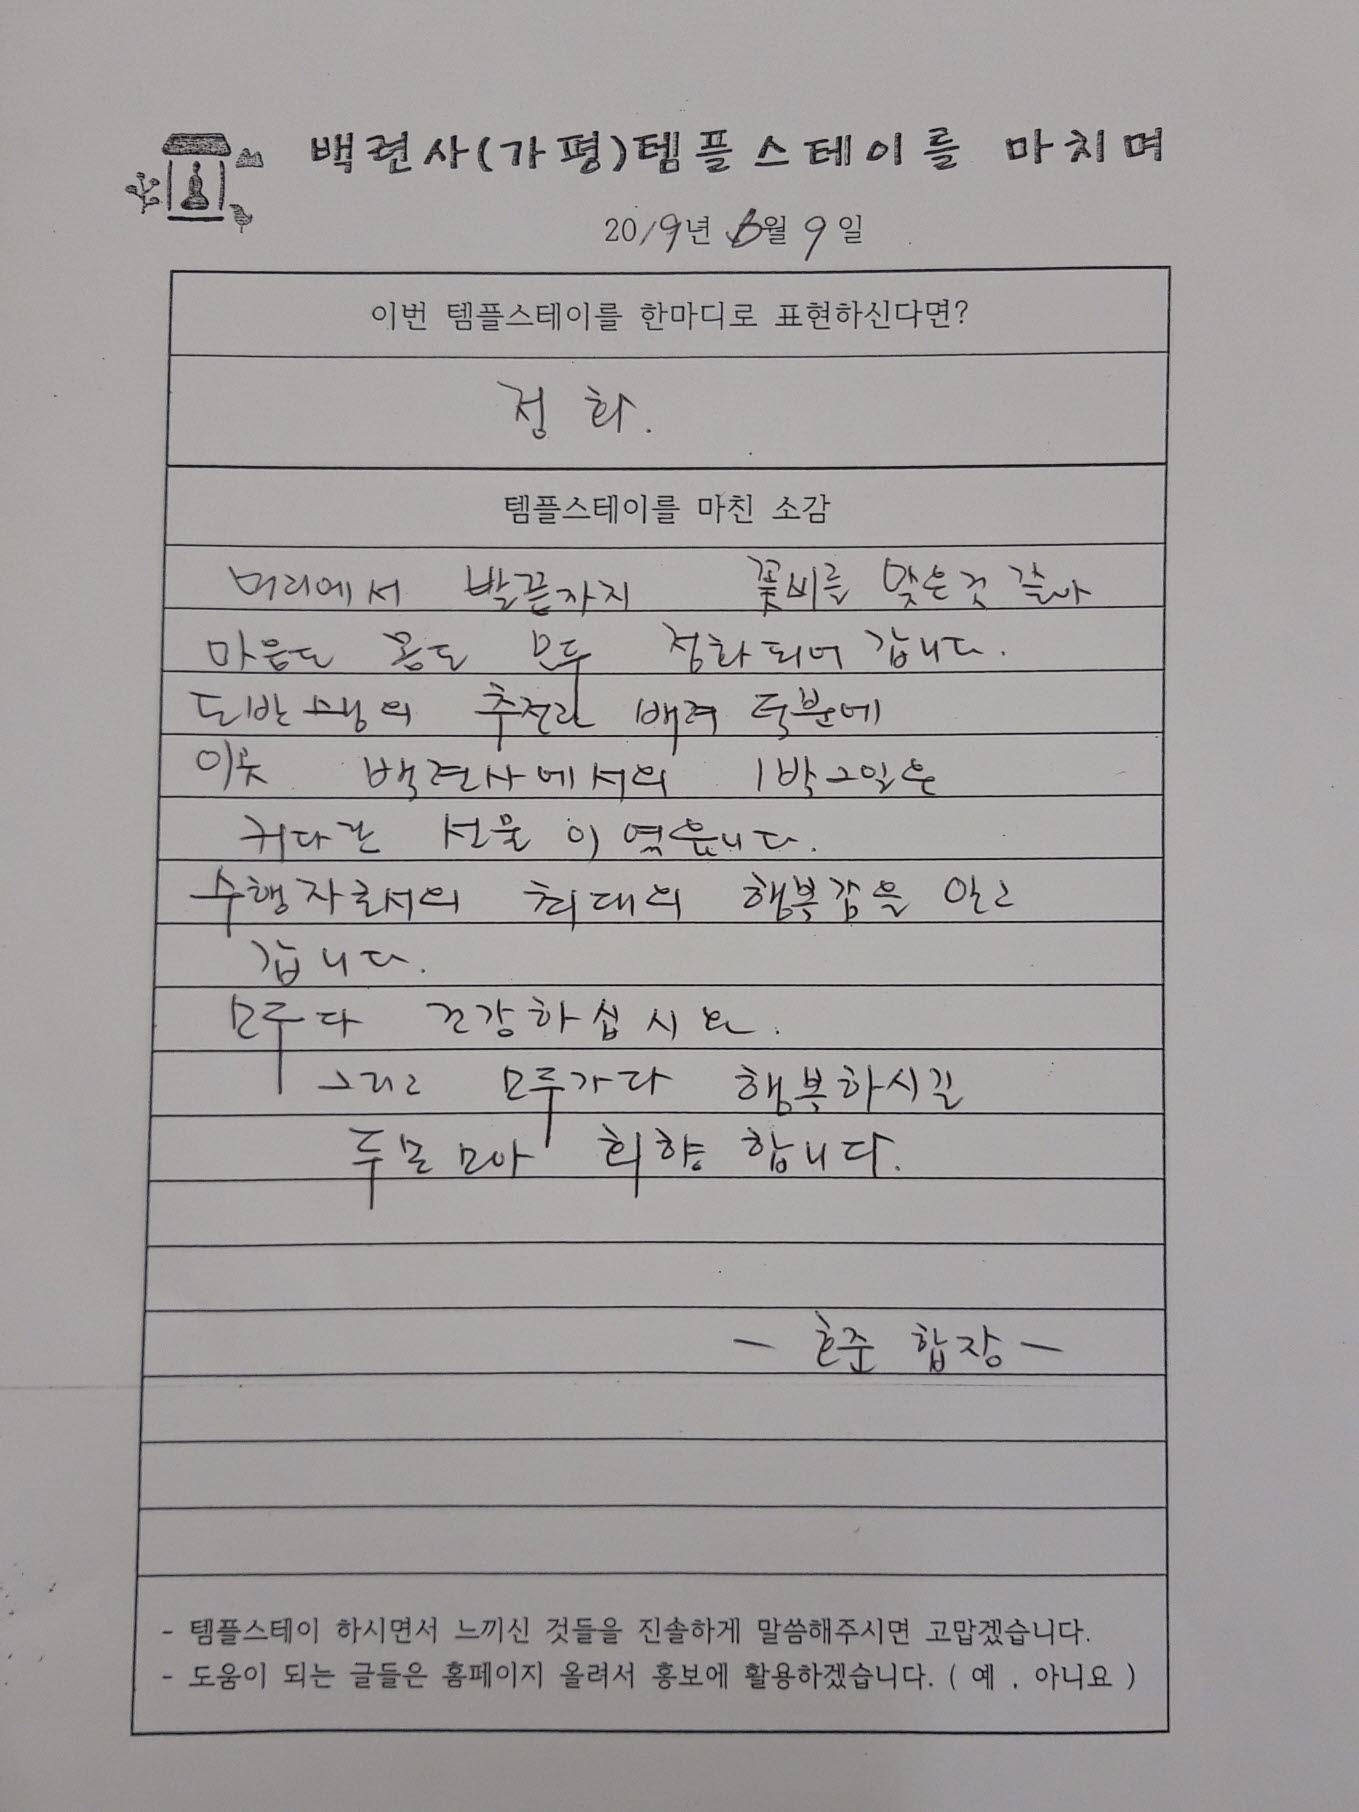 백련사(가평)템플스테이를 마치며
2019년 6월 9일
이번 템플스테이를 한마디로 표현하신다면?
정화.
템플스테이를 마친 소감
머리에서 발끝까지 꽃비를 맞은것 같아
마음도 몸도 모두 정화되어 갑니다.
도반스님의 추천과 배려 덕분에
이곳 백련사에서의 1박2일은
커다란 선물 이였습니다.
수행자로서의 최대의 행복감을 안고
갑니다.
모두다 건강하십시요.
그리고 모두가다 행복하시길
두손모아 회향 합니다.
- 효준 합장 -
- 템플스테이 하시면서 느끼신 것들을 진솔하게 말씀해주시면 고맙겠습니다.
- 도움이 되는 글들은 홈페이지 올려서 홍보에 활용하겠습니다. ( 예 , 아니요 )